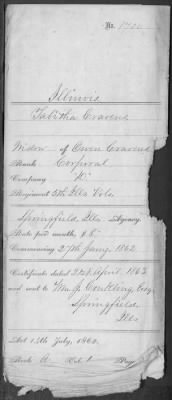 No.
Illinois
Tabitha Cravens
Widow of Owen Cravens
Rank Corporal
Company "K"
Regiment 5th Ills Vols
Springfield Ills. Agency.
Rate per month, $8.
Commencing 27th Jany. 1862
Certificate dated 21st April 1863
and sent to Wm. J. Conkling Esq.
Springfield
Ills
Act 14th July, 1862.
Book A Vol. 1 Page